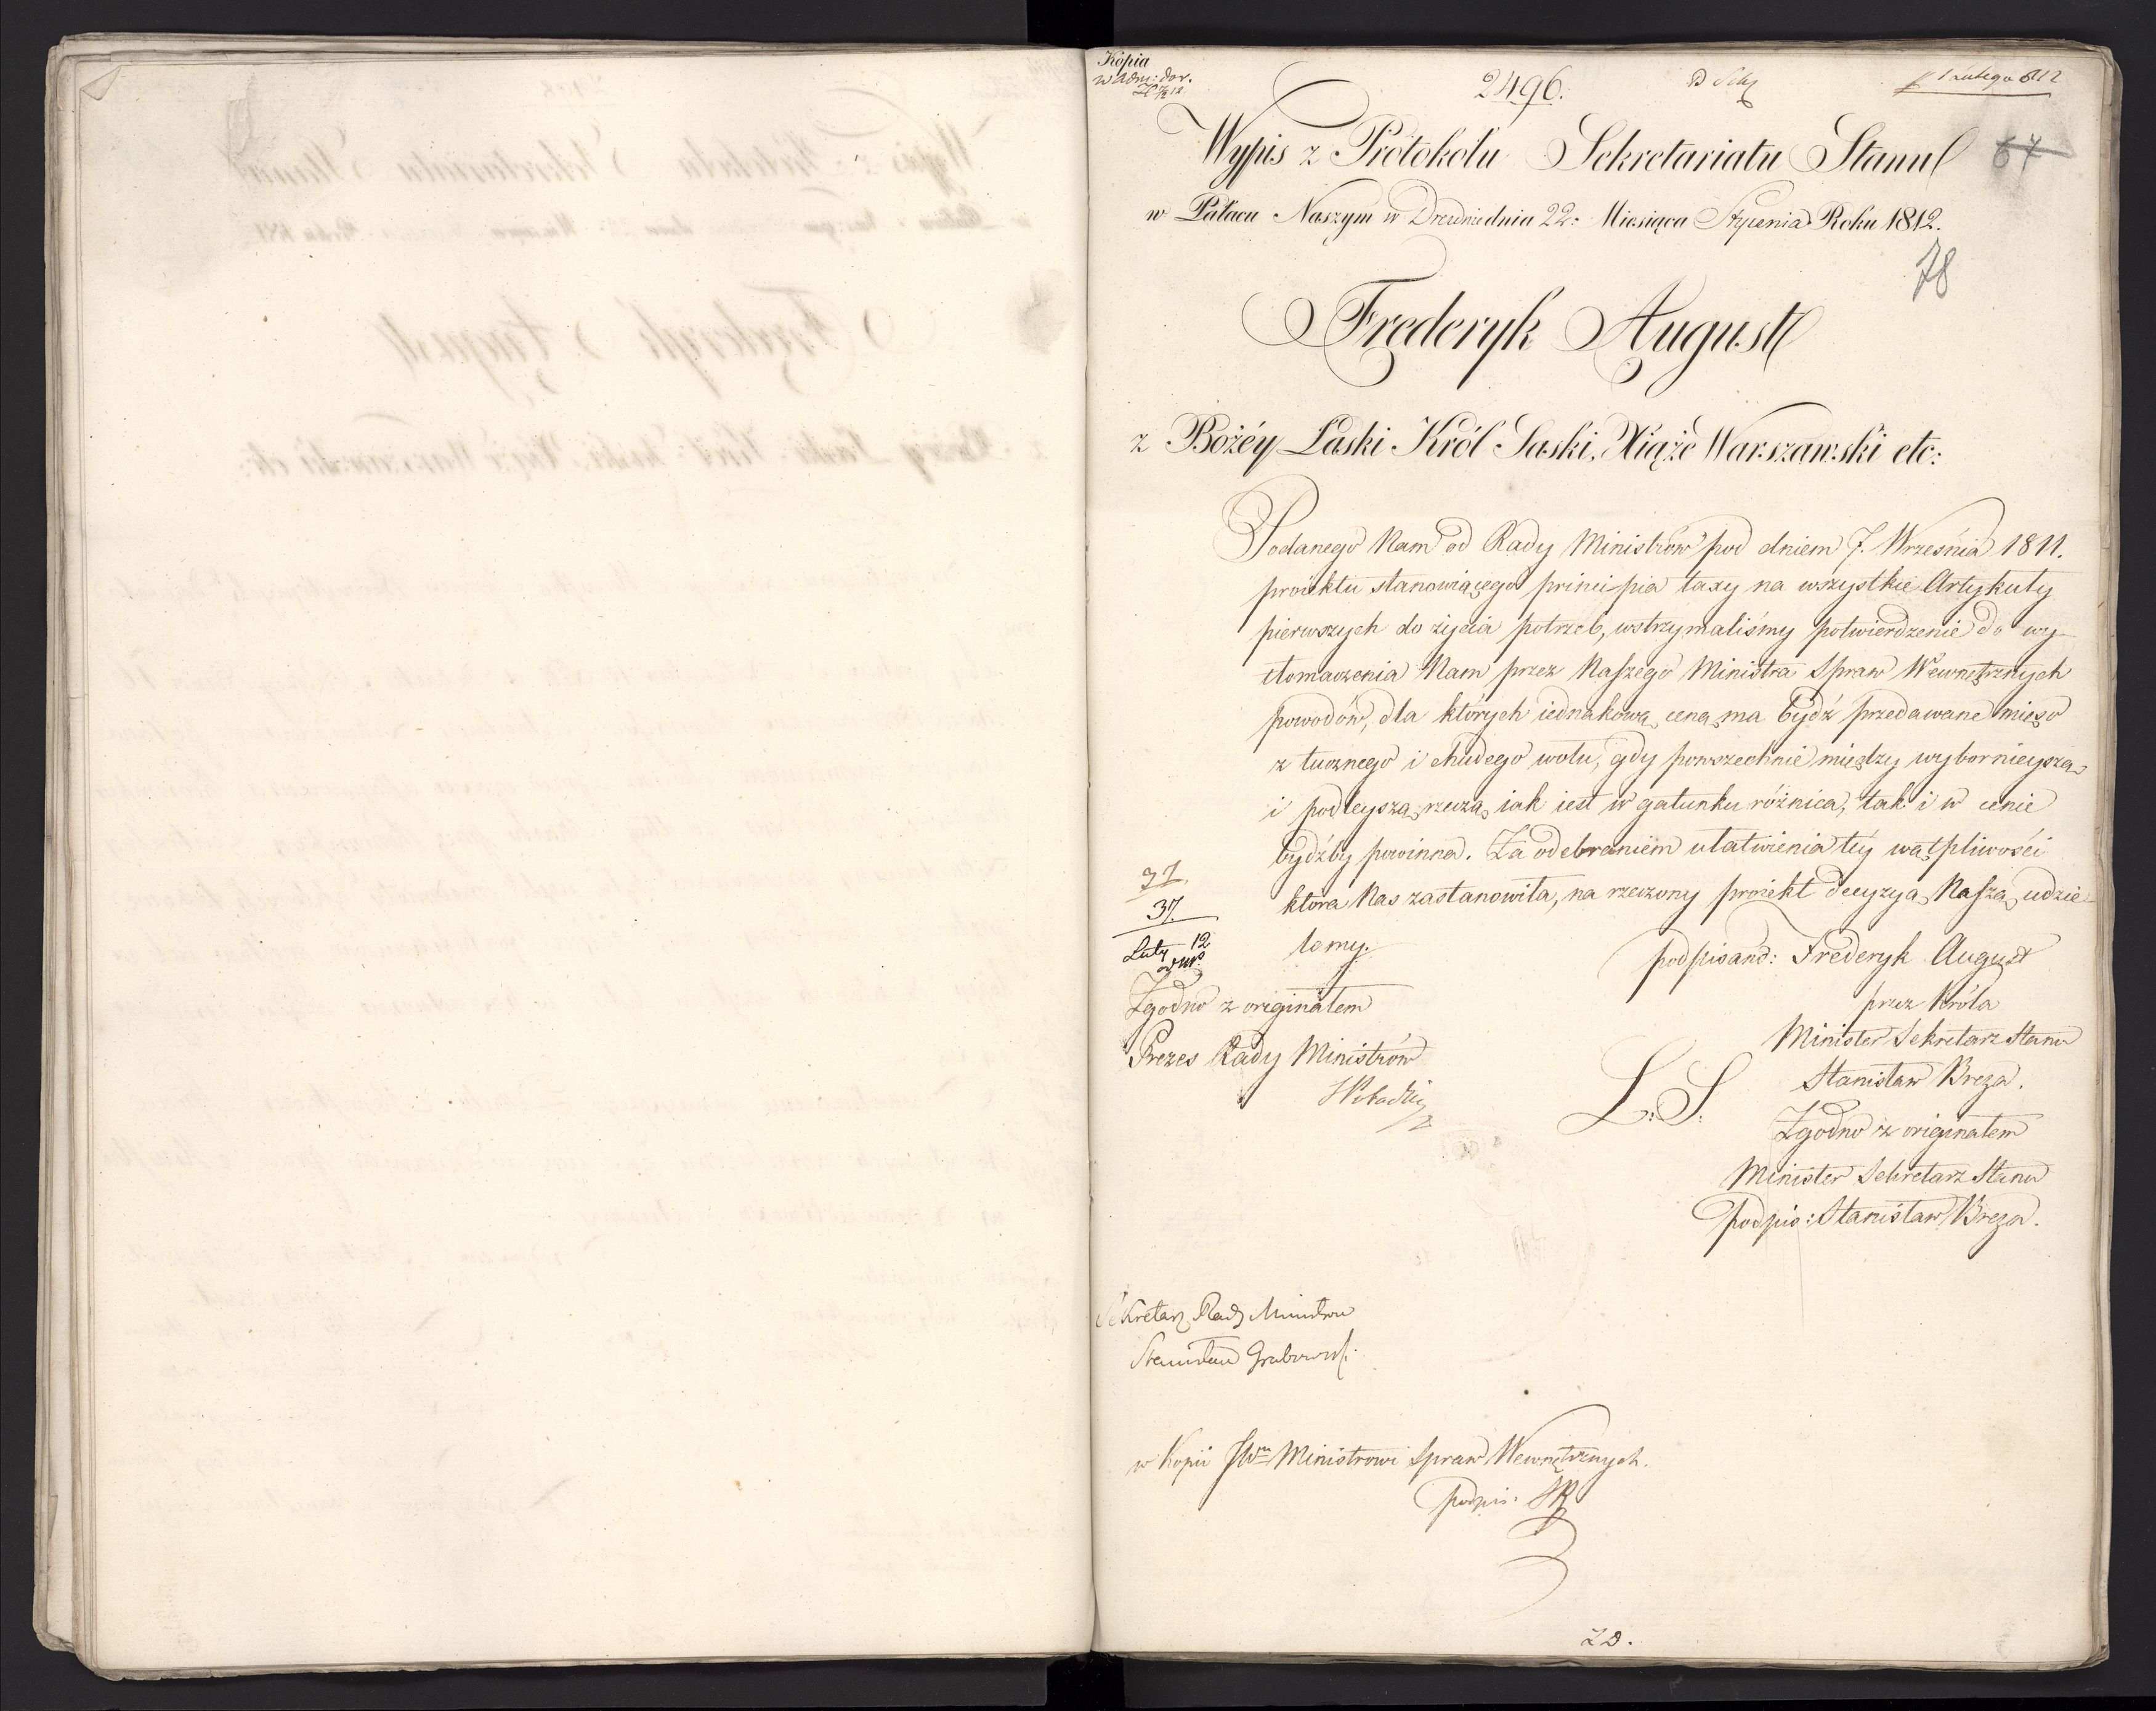 Kopia
2496.
1 Lutego 812
Wypis z Protokołu Sekretariatu Stanu
64
w Pałacu Naszym w Dreznie dnia 22: Miesiąca Stycznia Roku 1812.
78
Frederyk August
z Bożéy Łaski Król Saski, Xiąże Warszawski etc:
Podanego Nam od Rady Ministrów pod dniem 7. Września 1811.
proiektu stanowiącego principia taxy na wszystkie Artykuły
pierwszych do życia potrzeb, wstrzymaliśmy potwierdzenie do wy-
tłomaczenia Nam przez Naszego Ministra Spraw Wewnętrznych
powodów, dla których iednakową ceną ma bydź przedawane mięso
z tucznego i chudego wołu, gdy powszechnie między wybornieyszą
i podleyszą rzeczą iak iest w gatunku różnica, tak i w cenie
bydźby powinna. Za odebraniem ułatwienia téy wątpliwości
która Nas zastanowiła, na rzeczony proiekt decyzyą Naszą udzie-
lemy.
37.
Luty 12
podpisano: Frederyk August
przez Króla
Minister Sekretarz Stanu
Stanisław Breza.
L: S:
Zgodno z originałem
Minister Sekretarz Stanu
podpis: Stanisław Breza.
Zgodno z originałem
Prezes Rady Ministrów
Sekretarz Rady Ministrow
Stanisław Grabowski
w Kopii JW Ministrowi Spraw Wewnętrznych.
podpis. SP